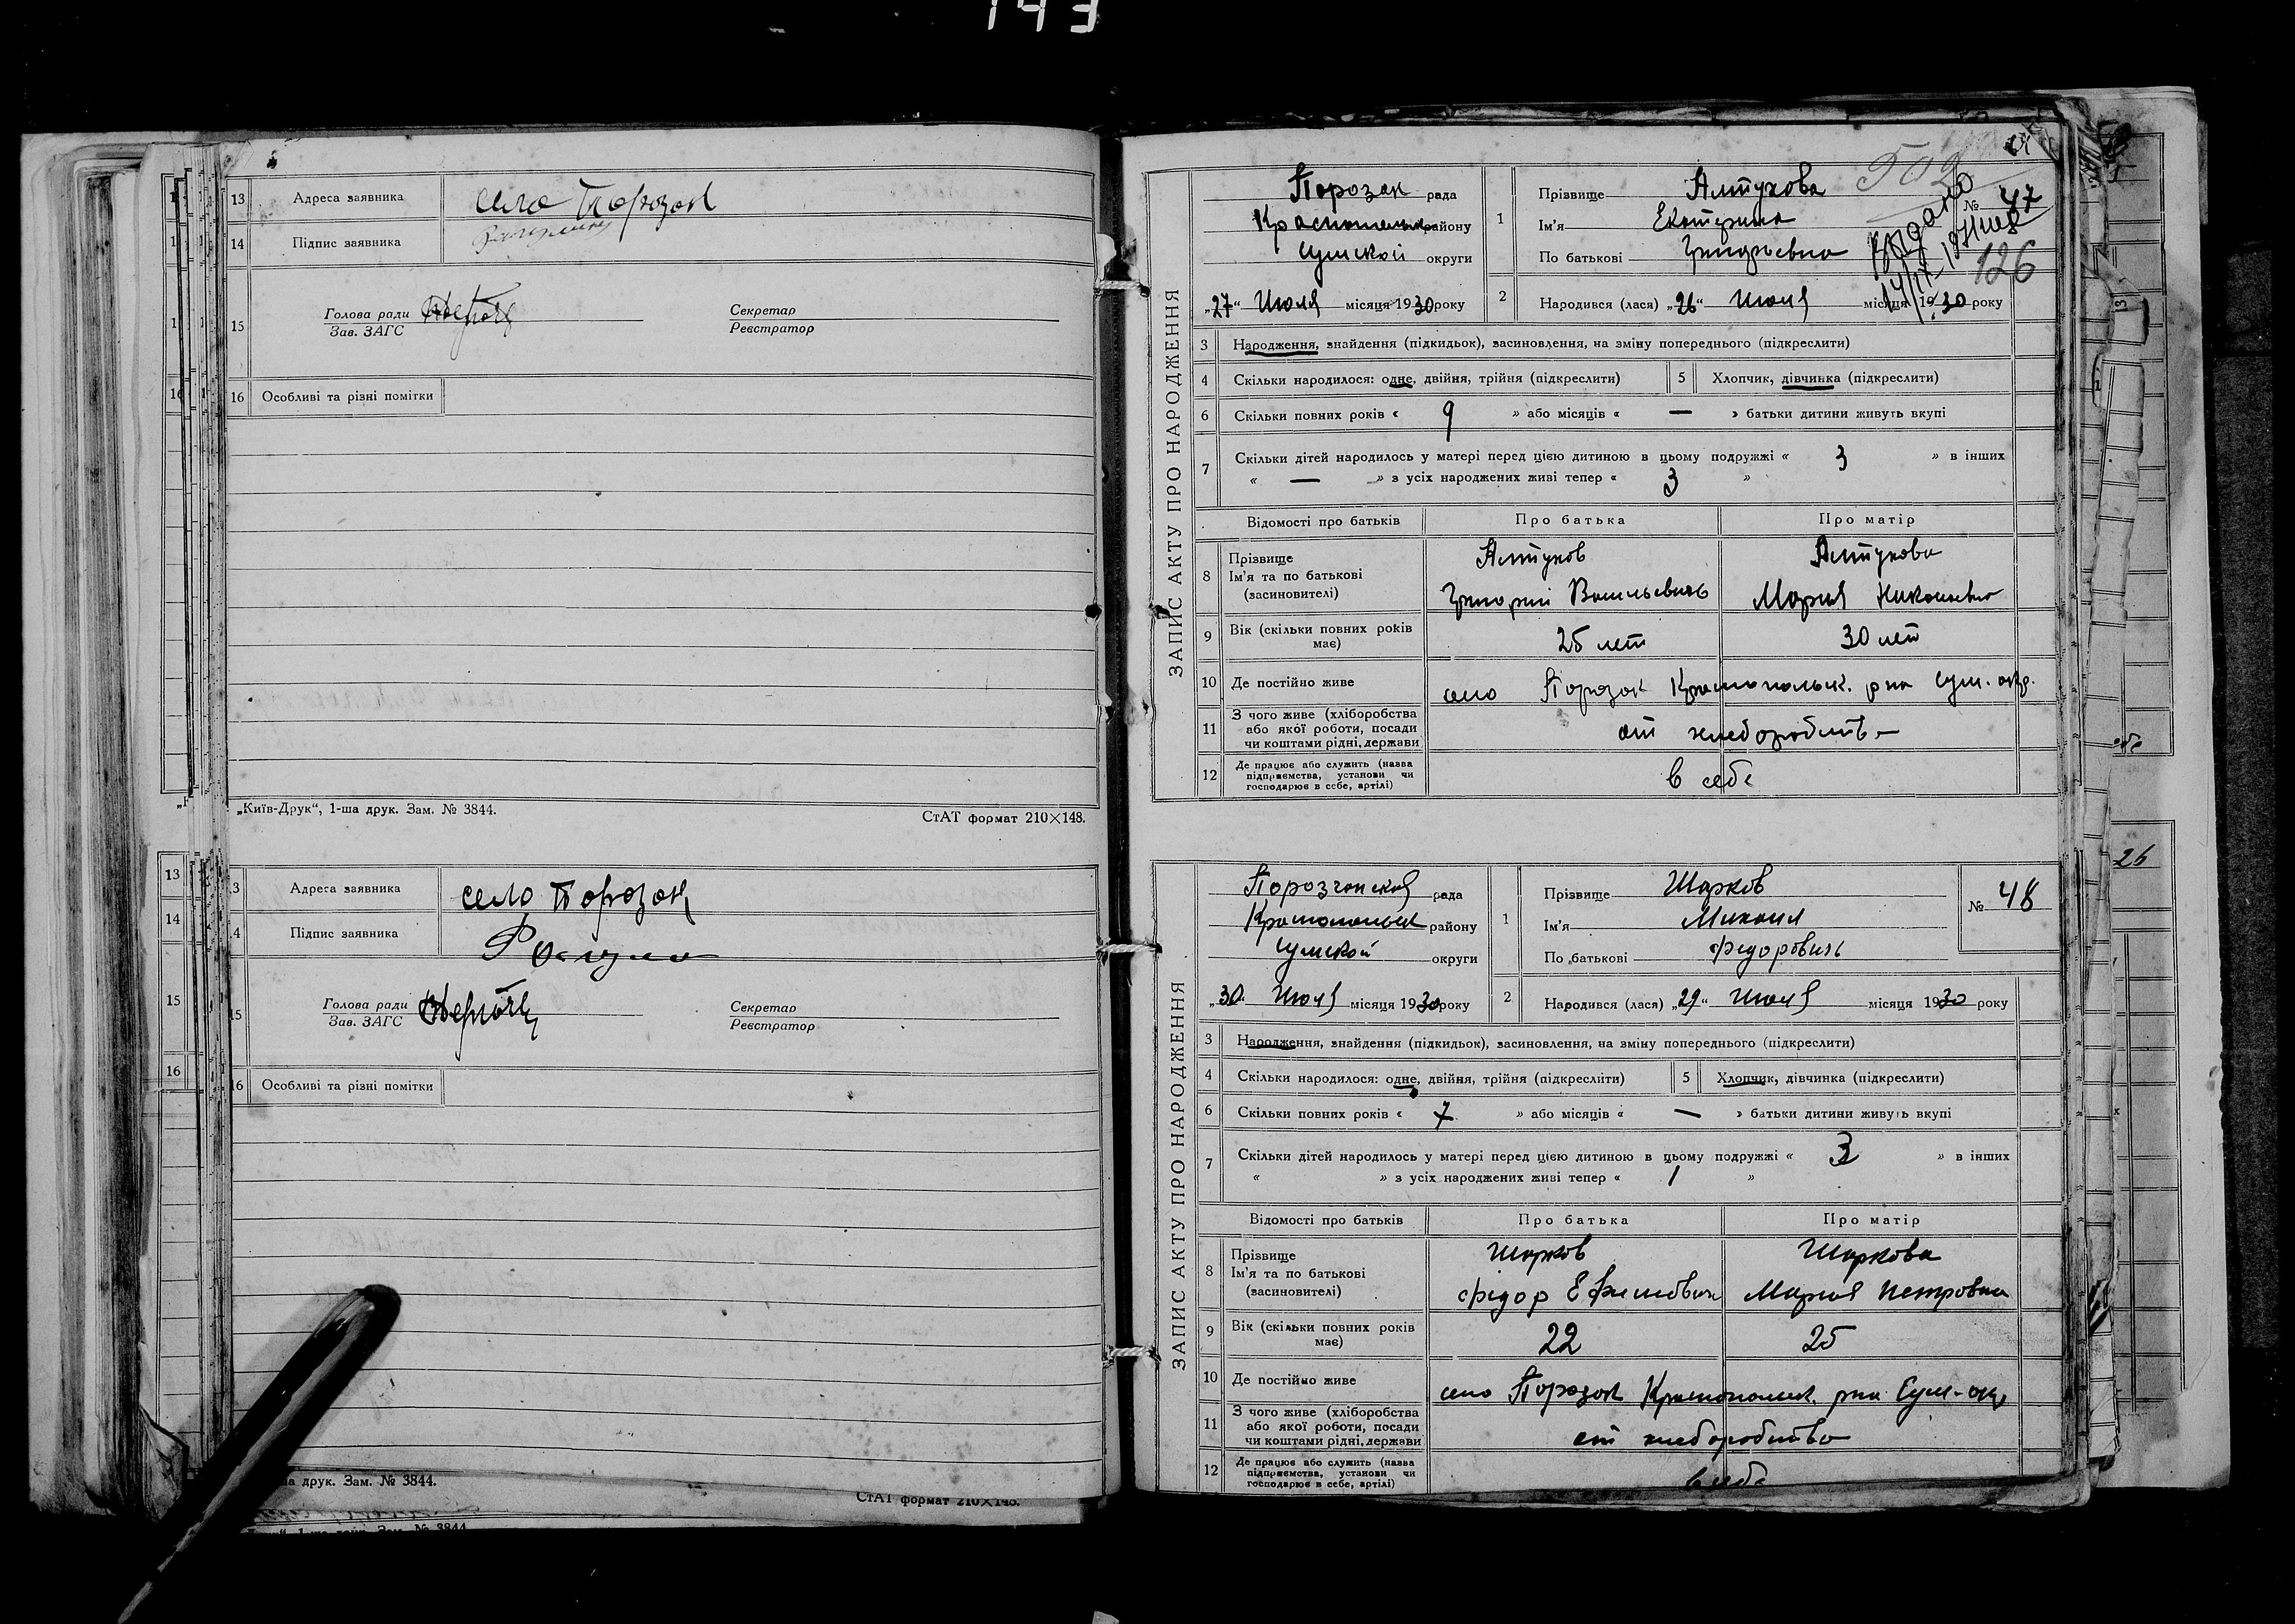 143
13 Адреса заявника село Порозок
14 Підпис заявника
15 Голова ради
Зав. ЗАГС
Секретар
Реєстратор
16 Особливі та різні помітки
„Київ-Друк“, 1-ша друк. Зам. № 3844. СтАТ формат 210×148.
13 Адреса заявника село Порозок
14 Підпис заявника
15 Голова ради
Зав. ЗАГС
Секретар
Реєстратор
16 Особливі та різні помітки
ша друк. Зам. № 3844.
СтАТ формат 210×148.
ЗАПИС АКТУ ПРО НАРОДЖЕННЯ
Порозок рада
району
Сумской округи
„27“ Июля місяця 1930 року
502
№ 47
Видано
126
1 Прізвище Алтухова
Ім'я Екатерина
По батькові
2 Народився (лася) „26“ Июля місяця 1930 року
3 Народження, знайдення (підкидьок), засиновлення, на зміну попереднього (підкреслити)
4 Скільки народилося: одне, двійня, трійня (підкреслити) 5 Хлопчик, дівчинка (підкреслити)
6 Скільки повних років « 9 » або місяців « — » батьки дитини живуть вкупі
7 Скільки дітей народилось у матері перед цією дитиною в цьому подружжі « 3 » в інших
« — » з усіх народжених живі тепер « 3 »
Відомості про батьків Про батька Про матір
8 Прізвище Алтухов Алтухова
Ім'я та по батькові
(засиновителі) Григорий Васильевичь Мария
9 Вік (скільки повних років
має) 25 лет 30 лет
10 Де постійно живе село Порозок Краснопольск. рна Сум. окр.
11 З чого живе (хліборобства
або якої роботи, посади
чи коштами рідні, держави от хлеборобства
12 Де працює або служить (назва
підприємства, установи чи
господарює в себе, артілі) в себе
ЗАПИС АКТУ ПРО НАРОДЖЕННЯ
рада
району
Сумской округи
„30“ Июля місяця 1930 року
№ 48
1 Прізвище Шарков
Ім'я Михаил
По батькові Федоровичь
2 Народився (лася) „29“ Июля місяця 1930 року
3 Народження, знайдення (підкидьок), засиновлення, на зміну попереднього (підкреслити)
4 Скільки народилося: одне, двійня, трійня (підкреслити) 5 Хлопчик, дівчинка (підкреслити)
6 Скільки повних років « 7 » або місяців « — » батьки дитини живуть вкупі
7 Скільки дітей народилось у матері перед цією дитиною в цьому подружжі « 3 » в інших
« » з усіх народжених живі тепер « 1 »
Відомості про батьків Про батька Про матір
8 Прізвище Шарков Шаркова
Ім'я та по батькові
(засиновителі) Федор Мария Петровна
9 Вік (скільки повних років
має) 22 25
10 Де постійно живе село Порозок Краснопольск. рна Сум. окр
11 З чого живе (хліборобства
або якої роботи, посади
чи коштами рідні, держави от хлеборобства
12 Де працює або служить (назва
підприємства, установи чи
господарює в себе, артілі) в себе